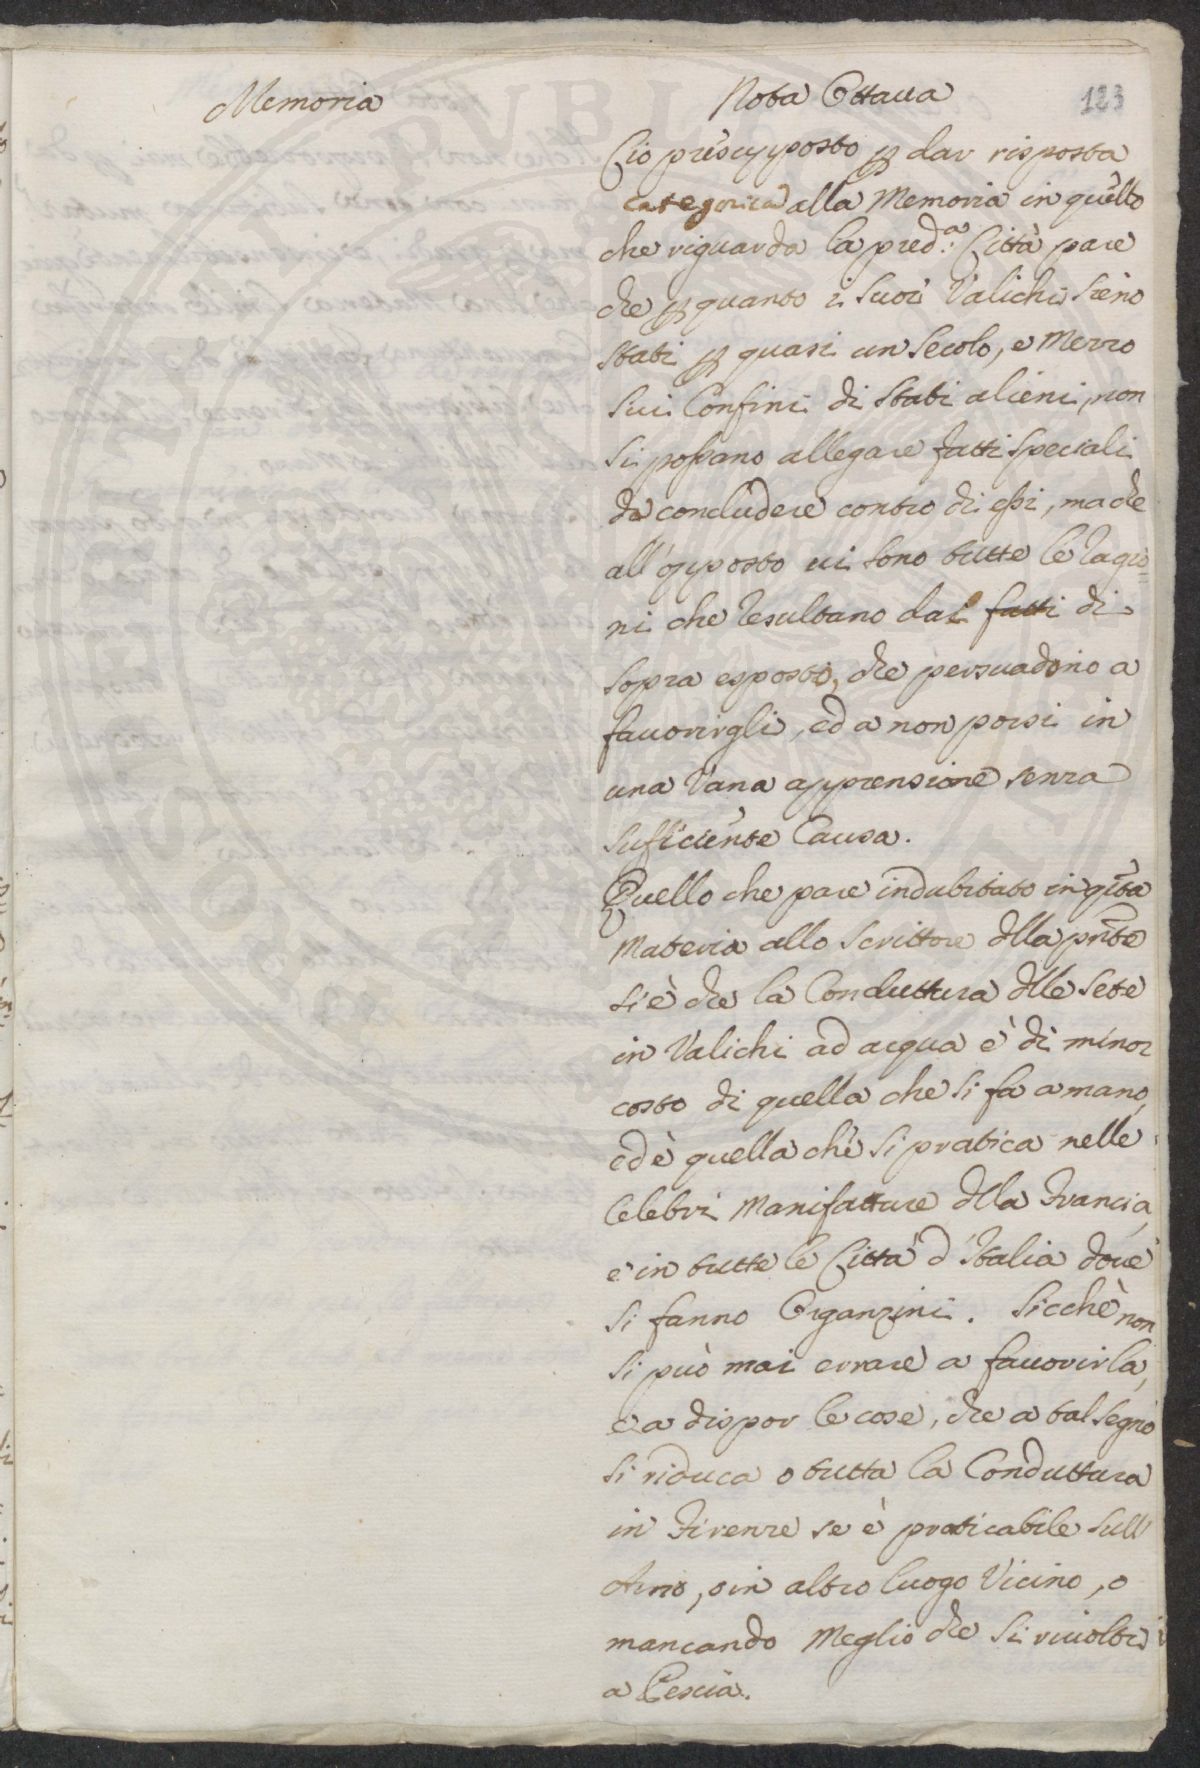 Memoria
Nota Ottava
123
Ciò presupposto p dar risposta
categorica alla Memoria in quello
che riguarda la pred.ª Città pare
che p quanto i suoi Valichi sieno
stati p quasi un secolo, e Mezzo
sui Confini di Stati alieni, non
si possano allegare fatti speciali
da concludere contro di essi, ma che
all'opposto vi sono tutte le ragio=
ni che resultano dai fatti di
sopra esposti, che persuadono a
favorirgli, ed a non porsi in
una Vana apprensione senza
sufficiente Causa.
Quello che pare indubitato in qsta
Materia allo scrittore dlla prnte
si è che la Conduttura dlle sete
in Valichi ad acqua è di minor
costo di quella che si fa a mano,
ed è quella che si pratica nelle
celebri Manifatture dlla Francia,
e in tutte le Città d'Italia dove
si fanno Organzini. Sicchè non
si può mai errare a favorirla,
e a dispor le cose, che a tal segno
si riduca o tutta la Conduttura
in Firenze se è praticabile sull'
Arno, o in altro luogo Vicino, o
mancando Meglio che si rivolti
a Pescia.